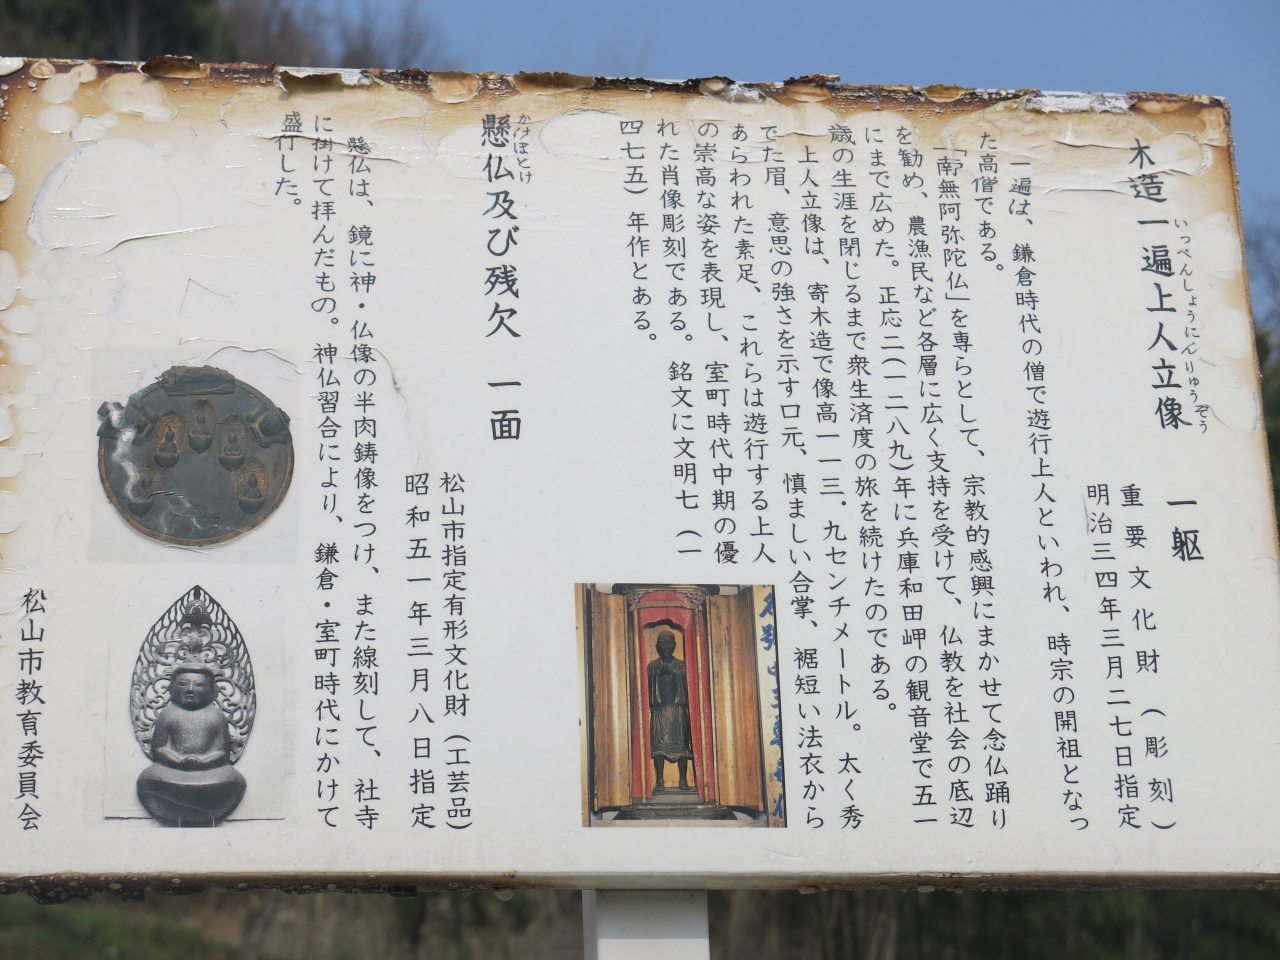 木造一遍上人立像 一躯
いっぺんしょうにんりゅうぞう
重要文化財(彫刻)
明治三四年三月二七日指定
一遍は、鎌倉時代の僧で遊行上人といわれ、時宗の開祖となっ
た高僧である。
「南無阿弥陀仏」を専らとして、宗教的感興にまかせて念仏踊り
を勧め、農漁民など各層に広く支持を受けて、仏教を社会の底辺
にまで広めた。正応二(一二八九)年に兵庫和田岬の観音堂で五一
歳の生涯を閉じるまで衆生済度の旅を続けたのである。
上人立像は、寄木造で像高一一三.九センチメートル。太く秀
でた眉、意思の強さを示す口元、慎ましい合掌、裾短い法衣から
あらわれた素足、これらは遊行する上人
の崇高な姿を表現し、室町時代中期の優
れた肖像彫刻である。銘文に文明七(一
四七五)年作とある。
懸仏及び残欠 一面
かけぼとけ
松山市指定有形文化財(工芸品)
昭和五一年三月八日指定
懸仏は、鏡に神・仏像の半肉鋳像をつけ、また線刻して、社寺
に掛けて拝んだもの。神仏習合により、鎌倉・室町時代にかけて
盛行した。
松山市教育委員会